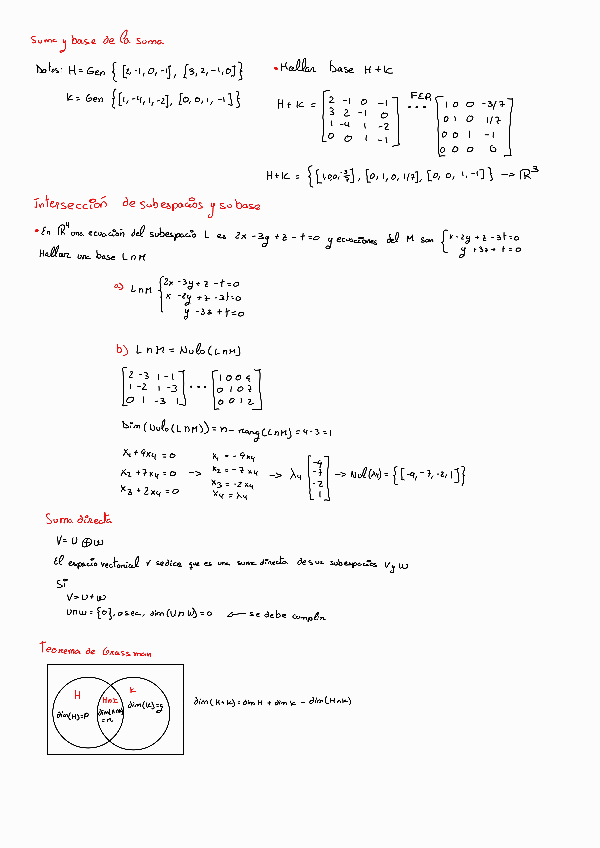 Suma y base de la suma
Datos: H = Gen { [2, -1, 0, -1], [3, 2, -1, 0] }
K = Gen { [1, -4, 1, -2], [0, 0, 1, -1] }
• Hallar base H+K
H+K = [ 2 -1 0 -1 ... FER [ 1 0 0 -3/7
3 2 -1 0 0 1 0 1/7
1 -4 1 -2 0 0 1 -1
0 0 1 -1 ] 0 0 0 0 ]
H+K = { [1,0,0,-3/7], [0, 1, 0, 1/7], [0, 0, 1, -1] } → ℝ³
Intersección de subespacios y su base
• En ℝ⁴ una ecuación del subespacio L es 2x - 3y + z - t = 0 y ecuaciones del M son { x - 2y + z - 3t = 0
y + 3z + t = 0
Hallar una base L∩M
a) L∩M { 2x - 3y + z - t = 0
x - 2y + z - 3t = 0
y - 3z + t = 0
b) L∩M = Nulo(L∩M)
[ 2 -3 1 -1 ... [ 1 0 0 4
1 -2 1 -3 0 1 0 7
0 1 -3 1 ] 0 0 1 2 ]
Dim(Nulo(L∩M)) = n - rang(L∩M) = 4 - 3 = 1
x₁ + 4x₄ = 0 x₁ = -4x₄ [ -4
x₂ + 7x₄ = 0 → x₂ = -7x₄ → λ₄ -7 → Nul(λ₄) = { [-4, -7, -2, 1] }
x₃ + 2x₄ = 0 x₃ = -2x₄ -2
x₄ = λ₄ 1 ]
Suma directa
V = U ⊕ W
El espacio vectorial V se dice que es una suma directa de sus subespacios U y W
Si
V = U + W
U∩W = {0}, o sea, dim(U∩W) = 0 ← se debe cumplir
Teorema de Grassman
H K
H∩K
dim(H)=P dim(H∩K) dim(K)=q
= r
dim(H+K) = dim H + dim K - dim(H∩K)